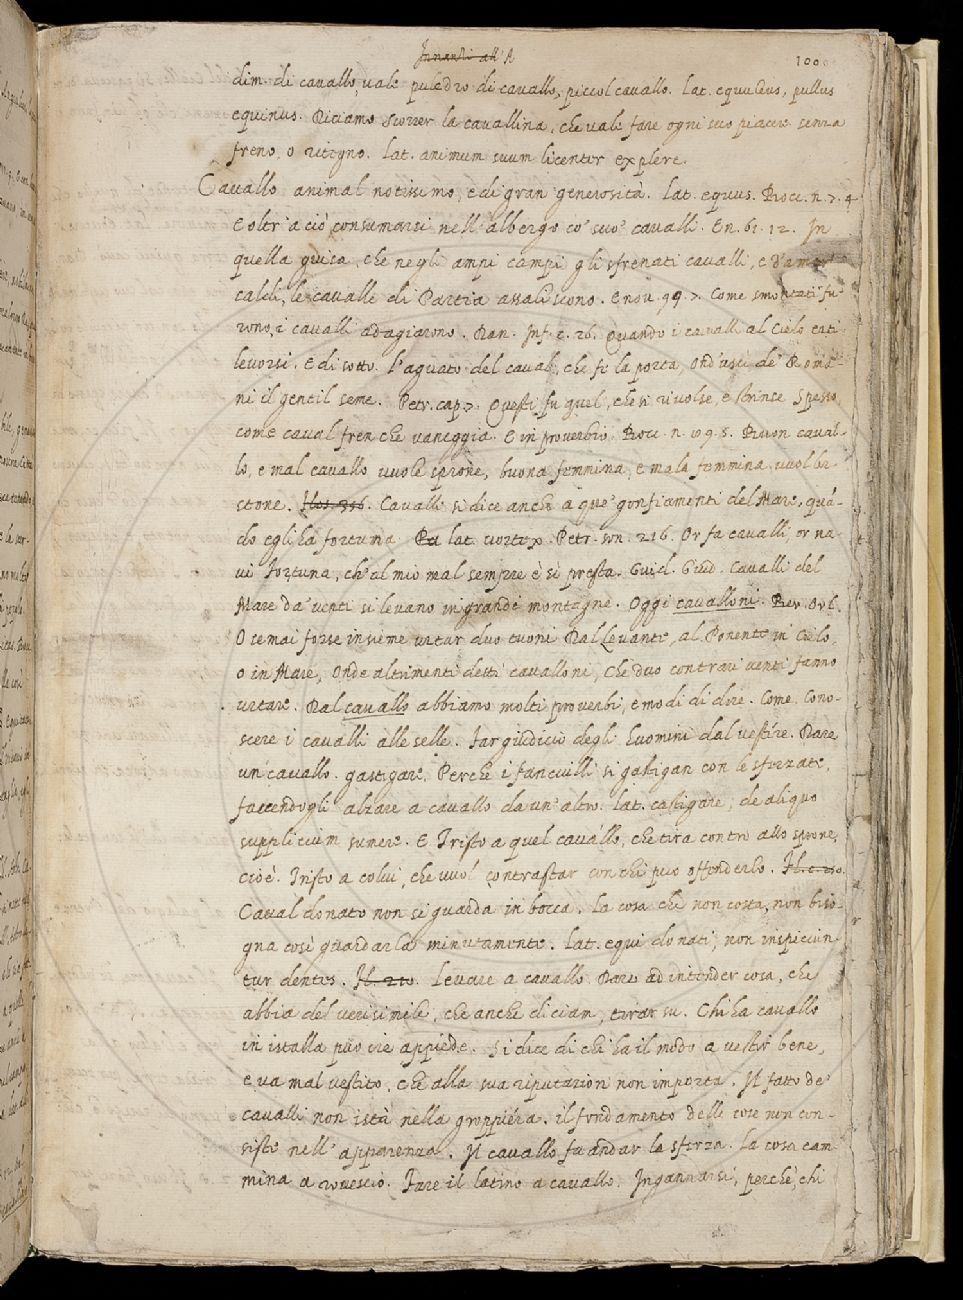 Innanzi all' A
100
dim. di cavallo, vale puledro di cavallo, piccol cavallo. Lat. equuleus, pullus
equinus. Diciamo Scorrer la cavallina, che vale fare ogni suo piacere senza
freno, o ritegno. Lat. animum suum licenter explere.
Cavallo animal notissimo, e di gran generosità. Lat. equus. Bocc. n. 7. 4
E oltr' a ciò consumarsi nell' albergo co' suo' cavalli. En. 61. 12. In
quella guisa, che negli ampi campi gli sfrenati cavalli, e d'amor
caldi, le cavalle di Partia assaliscono. E nov. 99. 7. Come smontati fu-
rono, i cavalli adagiarono. Dan. Inf. c. 26. Quando i cavalli al Cielo erti
levorsi. E di sotto. l'aguato del caval, che fè la porta, Ond' uscì de' Roma-
ni il gentil seme. Petr. cap. 7. Questi fu quel, che si rivolse, e strinse Spesso,
come caval fren che vaneggia. E in proverbio. Bocc. n. 99. 5. Buon caval-
lo, e mal cavallo vuole sprone, buona femmina, e mala femmina vuol ba-
stone. Cavalli si dice anche a que' gonfiamenti del Mare, quã-
do egli ha fortuna lat. vortex. Petr. son. 216. Or fa cavalli, or na-
vi Fortuna, ch' al mio mal sempre è sì presta. Guid. Giud. Cavalli del
Mare da' venti si levano in grande montagne. Oggi cavalloni. Bern. Orl.
O se mai forse insieme urtar duo tuoni Dal Levante, al Ponente in Cielo,
o in Mare, Onde altrimenti detti cavalloni, Che duo contrari venti fanno
urtare. Dal cavallo abbiamo molti proverbi, e modi di dire. Come. Cono-
scere i cavalli alle selle. Far giudicio degli huomini dal vestire. Dare
un cavallo. gastigare. Perche i fanciulli si gastigan con le sferzate,
faccendogli alzare a cavallo da un' altro. Lat. castigare, de aliquo
supplicium sumere. E Tristo a quel cavallo, che tira contro allo sprone,
cioè. Tristo a colui, che vuol contrastar con chi può offenderlo.
Caval donato non si guarda in bocca. La cosa che non costa, non biso-
gna così guardarla minutamente. Lat. equi donati non inspiciun-
tur dentes. Levare a cavallo. Dare ad intender cosa, che
abbia del verisimile, che anche diciam, tirar su. Chi ha cavallo
in istalla può ire appiède. Si dice di chi ha il modo a vestir bene,
e va mal vestito, che alla sua riputazion non importa. Il fatto de'
cavalli non istà nella groppiera. il fondamento delle cose non con-
siste nell' apparenza. Il cavallo fa andar la sferza. La cosa cam-
mina a rovescio. Fare il latino a cavallo. Ingannarsi, perchè, chi